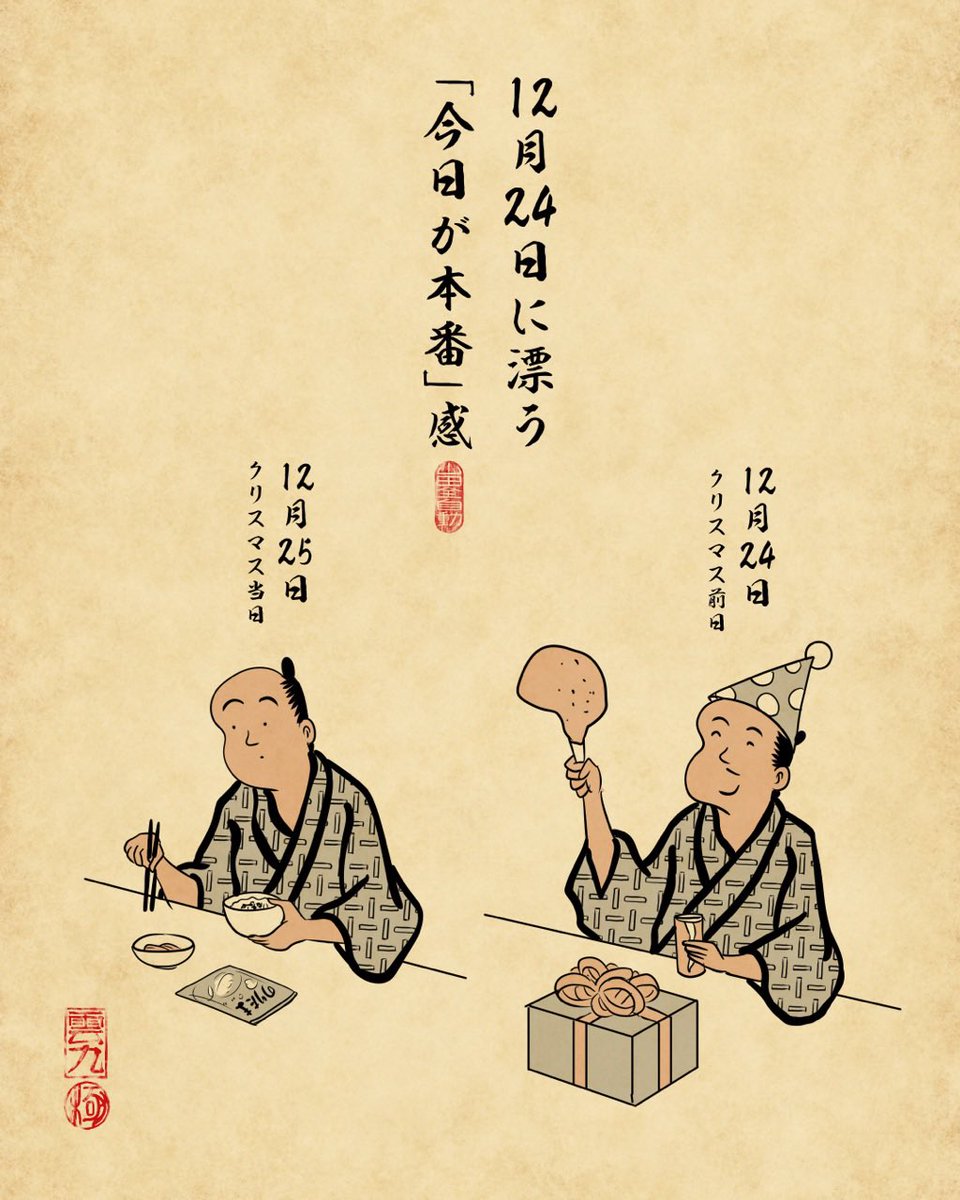 12月24日に漂う
「今日が本番」感
12月24日
クリスマス前日
12月25日
クリスマス当日
雲九
極